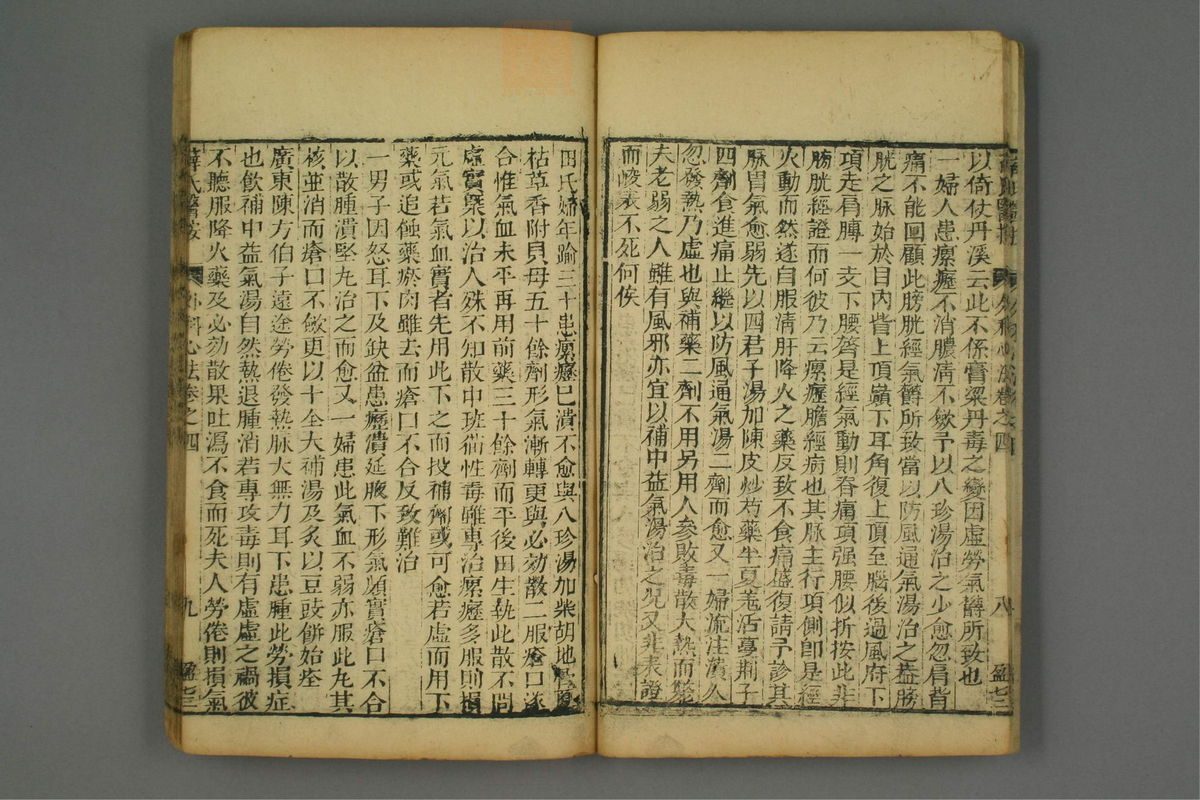 薛氏醫按 外科心法卷之四 八 盈七三
以倚仗丹溪云此不係膏粱丹毒之變因虛勞氣欝所致也
一婦人患瘰癧不消膿淸不歛予以八珍湯治之少愈忽肩背
痛不能回顧此膀胱經氣欝所致當以防風通氣湯治之蓋膀
胱之脉始於目內眥上頂巔下耳角復上頂至腦後過風府下
項走肩膊一支下腰膂是經氣動則脊痛項强腰似折按此非
膀胱經證而何彼乃云瘰癧膽經病也其脉主行項側卽是經
火動而然遂自服淸肝降火之藥反致不食痛盛復請予診其
脉胃氣愈弱先以四君子湯加陳皮炒芍藥半夏羌活蔓荆子
四劑食進痛止繼以防風通氣湯二劑而愈又一婦流注潰久
忽發熱乃虛也與補藥二劑不用另用人參敗毒散大熱而斃
夫老弱之人雖有風邪亦宜以補中益氣湯治之况又非表證
而峻表不死何俟
田氏婦年踰三十患瘰癧已潰不愈與八珍湯加柴胡地骨夏
枯草香附貝母五十餘劑形氣漸轉更與必効散二服瘡口遂
合惟氣血未平再用前藥三十餘劑而平後田生執此散不問
虛實槩以治人殊不知散中班猫性毒雖專治瘰癧多服則損
元氣若氣血實者先用此下之而投補劑或可愈若虛而用下
藥或追蝕藥瘀肉雖去而瘡口不合反致難治
一男子因怒耳下及缺盆患癧潰延腋下形氣頗實瘡口不合
以散腫潰堅丸治之而愈又一婦患此氣血不弱亦服此丸其
核並消而瘡口不歛更以十全大補湯及灸以豆豉餅始痊
廣東陳方伯子遠途勞倦發熱脉大無力耳下患腫此勞損症
也飲補中益氣湯自然熱退腫消若專攻毒則有虛虛之禍彼
不聽服降火藥及必効散果吐瀉不食而死夫人勞倦則損氣
薛氏醫按 外科心法卷之四 九 盈七三